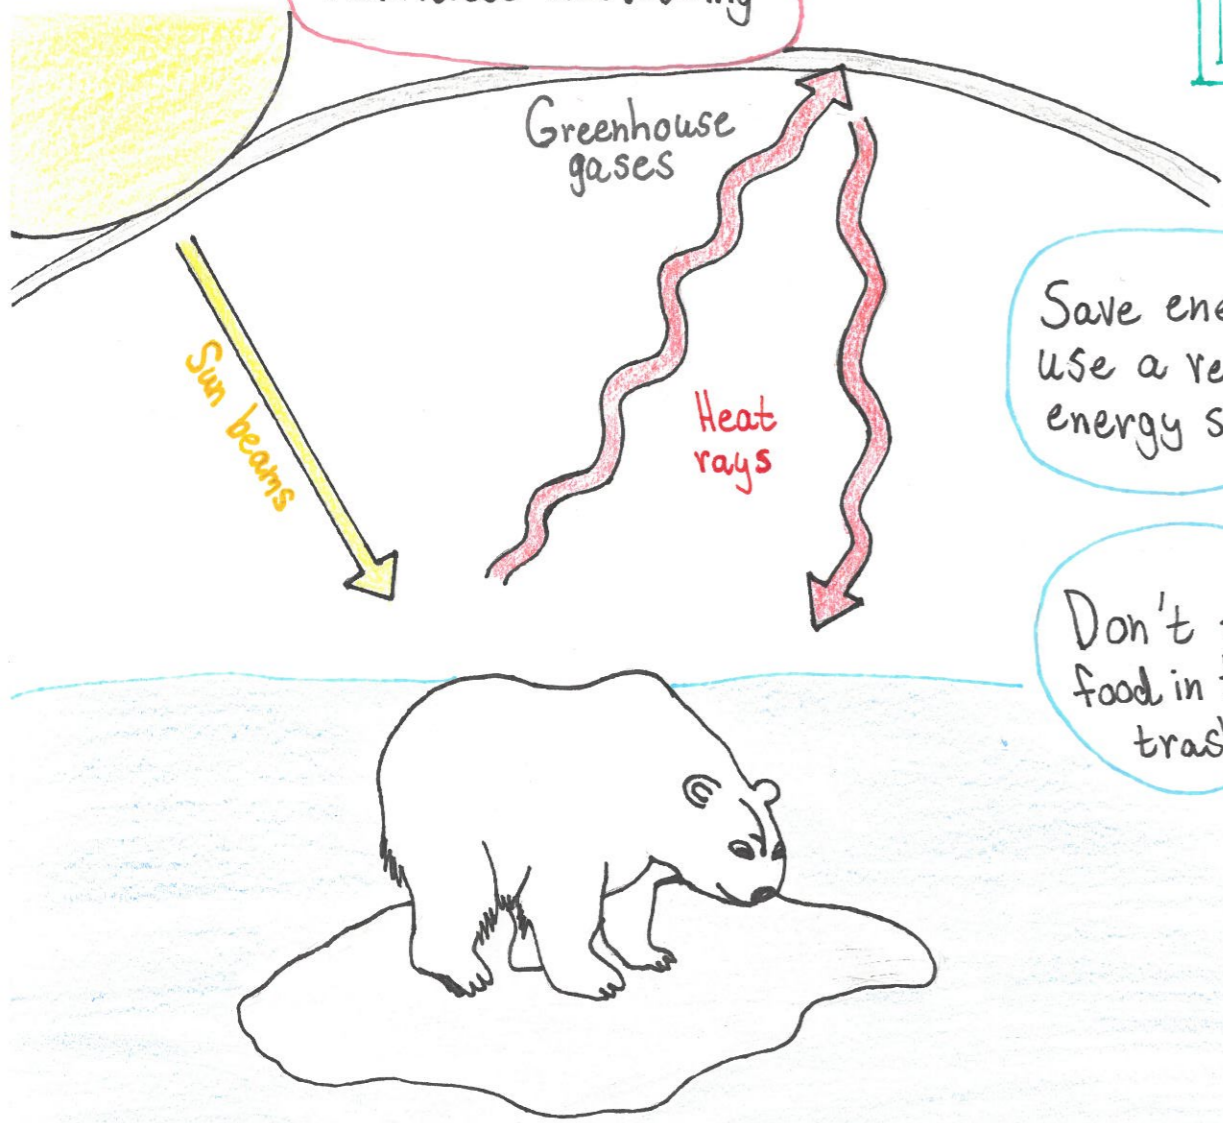 Greenhouse
gases
Sun beams
Heat
rays
Save
use a
energy
Don't
food in